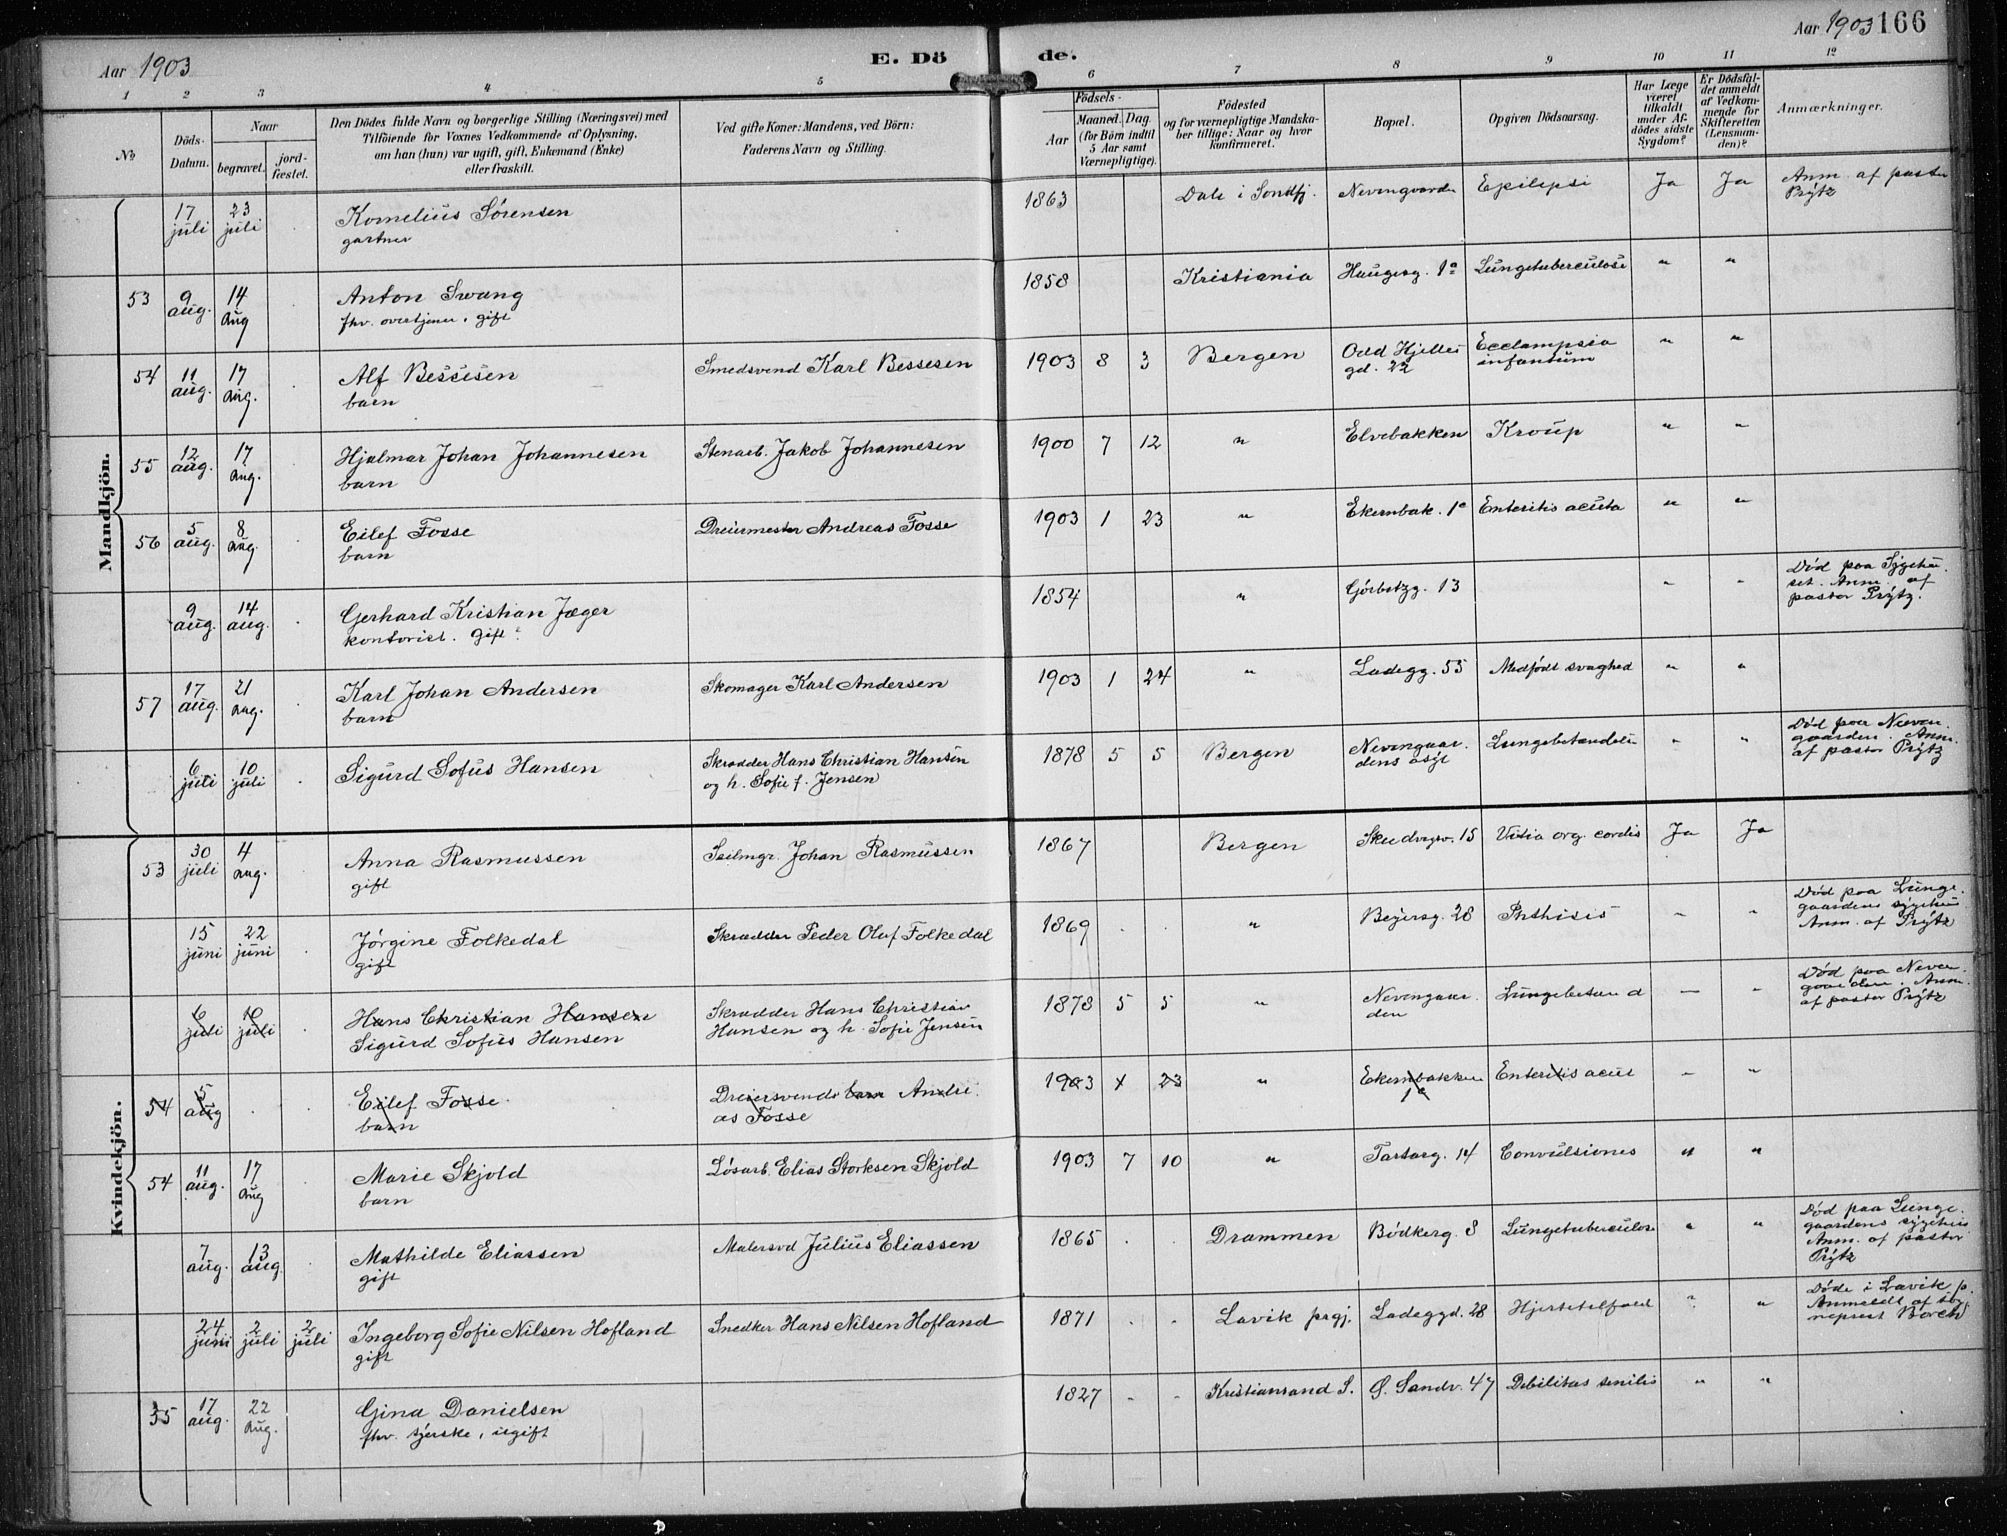 Aar 1903
E. Dö
de.
Aar 1903
166
1 2 3 4 5 6 7 8 9 10 11 12
No
Döds-
Datum.
Naar
begravet.
jord-
fæstet.
Den Dödes fulde Navn og borgerlige Stilling (Næringsvei) med
Tilföiende for Voxnes Vedkommende af Oplysning,
om han (hun) var ugift, gift, Enkemand (Enke)
eller fraskilt.
Ved gifte Koner: Mandens, ved Börn:
Faderens Navn og Stilling.
Födsels-
Aar
Maaned. Dag.
(for Börn indtil
5 Aar samt
Værnepligtige).
Födested
og for værnepligtige Mandska-
ber tillige: Naar og hvor
konfirmeret.
Bopæl.
Opgiven Dödsaarsag.
Har Læge
været
tilkaldt
under Af-
dödes sidste
Sygdom?
Er Dödsfal-
det anmeldt
af Vedkom-
mende for
Skifteretten
(Lensman-
den)?
Anmærkninger.
Mandkjön.
17 juli 23 juli Kornelius Sørensen
gartner
1863 Dale i Søndfj. Nevengaarden Epilepsi Ja Ja Anm. af pastor
Prÿtz
53 9 aug. 14 Aug Anton Swang
fhv. overtjener, gift
1858 Kristiania Haugesg. 1a Lungetuberculose " "
54 11 aug. 17 Aug. Alf Bessesen
barn
Smedsvend Karl Bessesen 1903 8 3 Bergen Odd Hjelles
gd. 22
Ecclampsia
infantum " "
55 12 aug. 17 Aug. Hjalmar Johan Johannesen
barn
Stenarb. Jakob Johannesen 1900 7 12 " Elvebakken Kroup " "
56 5 aug. 8 Aug. Eilef Fosse
barn
Dreiermester Andreas Fosse 1903 1 23 " Ekernbak. 1c Enteritis acuta " "
9 aug. 14 aug. Gerhard Kristian Jæger
kontorist. Gift
1854 " 13 " " Død paa Sygehu-
set. Anm. af
pastor Prÿtz.
57 17 aug. 21 Aug. Karl Johan Andersen
barn
Skomager Karl Andersen 1903 1 24 " Ladegg. 55 Medfödt svaghed " "
6 juli 10 juli Sigurd Sofus Hansen
Skrædder Hans Christian Hansen
og h. Sofie f. Jensen
1878 5 5 Bergen Nevengaar-
dens asÿl
" " Død paa Neven-
gaarden. Anm.
af pastor Prÿtz
Kvindekjön.
53 30 juli 4 Aug. Anna Rasmussen
gift
Seilmgr. Johan Rasmussen 1867 Bergen 15 Vitia org. cordis Ja Ja
15 juni 22 juni Jørgine Folkedal
gift
Skrædder Peder Olaf Folkedal 1869 . . " Beÿersg. 28 Phthisis " " Død paa Lunge-
gaardens sÿgehus
Anm. af Prÿtz
6 juli 10 juli Hans Christian Hansen
Sigurd Sofus Hansen
Skrædder Hans Christian
Hansen og h. Sofie Jensen
1878 5 5 " Nevengaar-
den
Lungebetænd " " Død paa Neven-
gaarden. Anm.
af pastor Prÿtz
54 5 aug . . Eilef Fosse
barn
Dreiersvends barn Andre-
as Fosse
1903 1 23 " Ekernbakken
1c
Enteritis acut " "
54 11 aug. 17 Aug Marie Skjold
barn
Løsarb. Elias Storksen Skjold 1903 7 10 " Tartarg. 14 Convulsiones " "
7 aug. 13 aug. Mathilde Eliassen
gift
Malersvd Julius Eliassen 1865 . . Drammen Bødkerg. 8 Lungetuberculose " " Død paa Lunge-
gaardens sÿgehus
Anm. af pastor
Prÿtz
24 juni 2 juli 2 juli Ingeborg Sofie Nilsen Hofland
gift
Snedker Hans Nilsen Hofland 1871 . . Lavik prgj. Ladeggd. 28 " " Døde i Lavik p.
Anmeldt af sog-
neprest Borch
55 17 aug. 22 Aug. Gina Danielsen
fhv. syerske, ugift
1827 - - Kristiansand S. Ø. Sandv. 47 Debilitas senilis " "